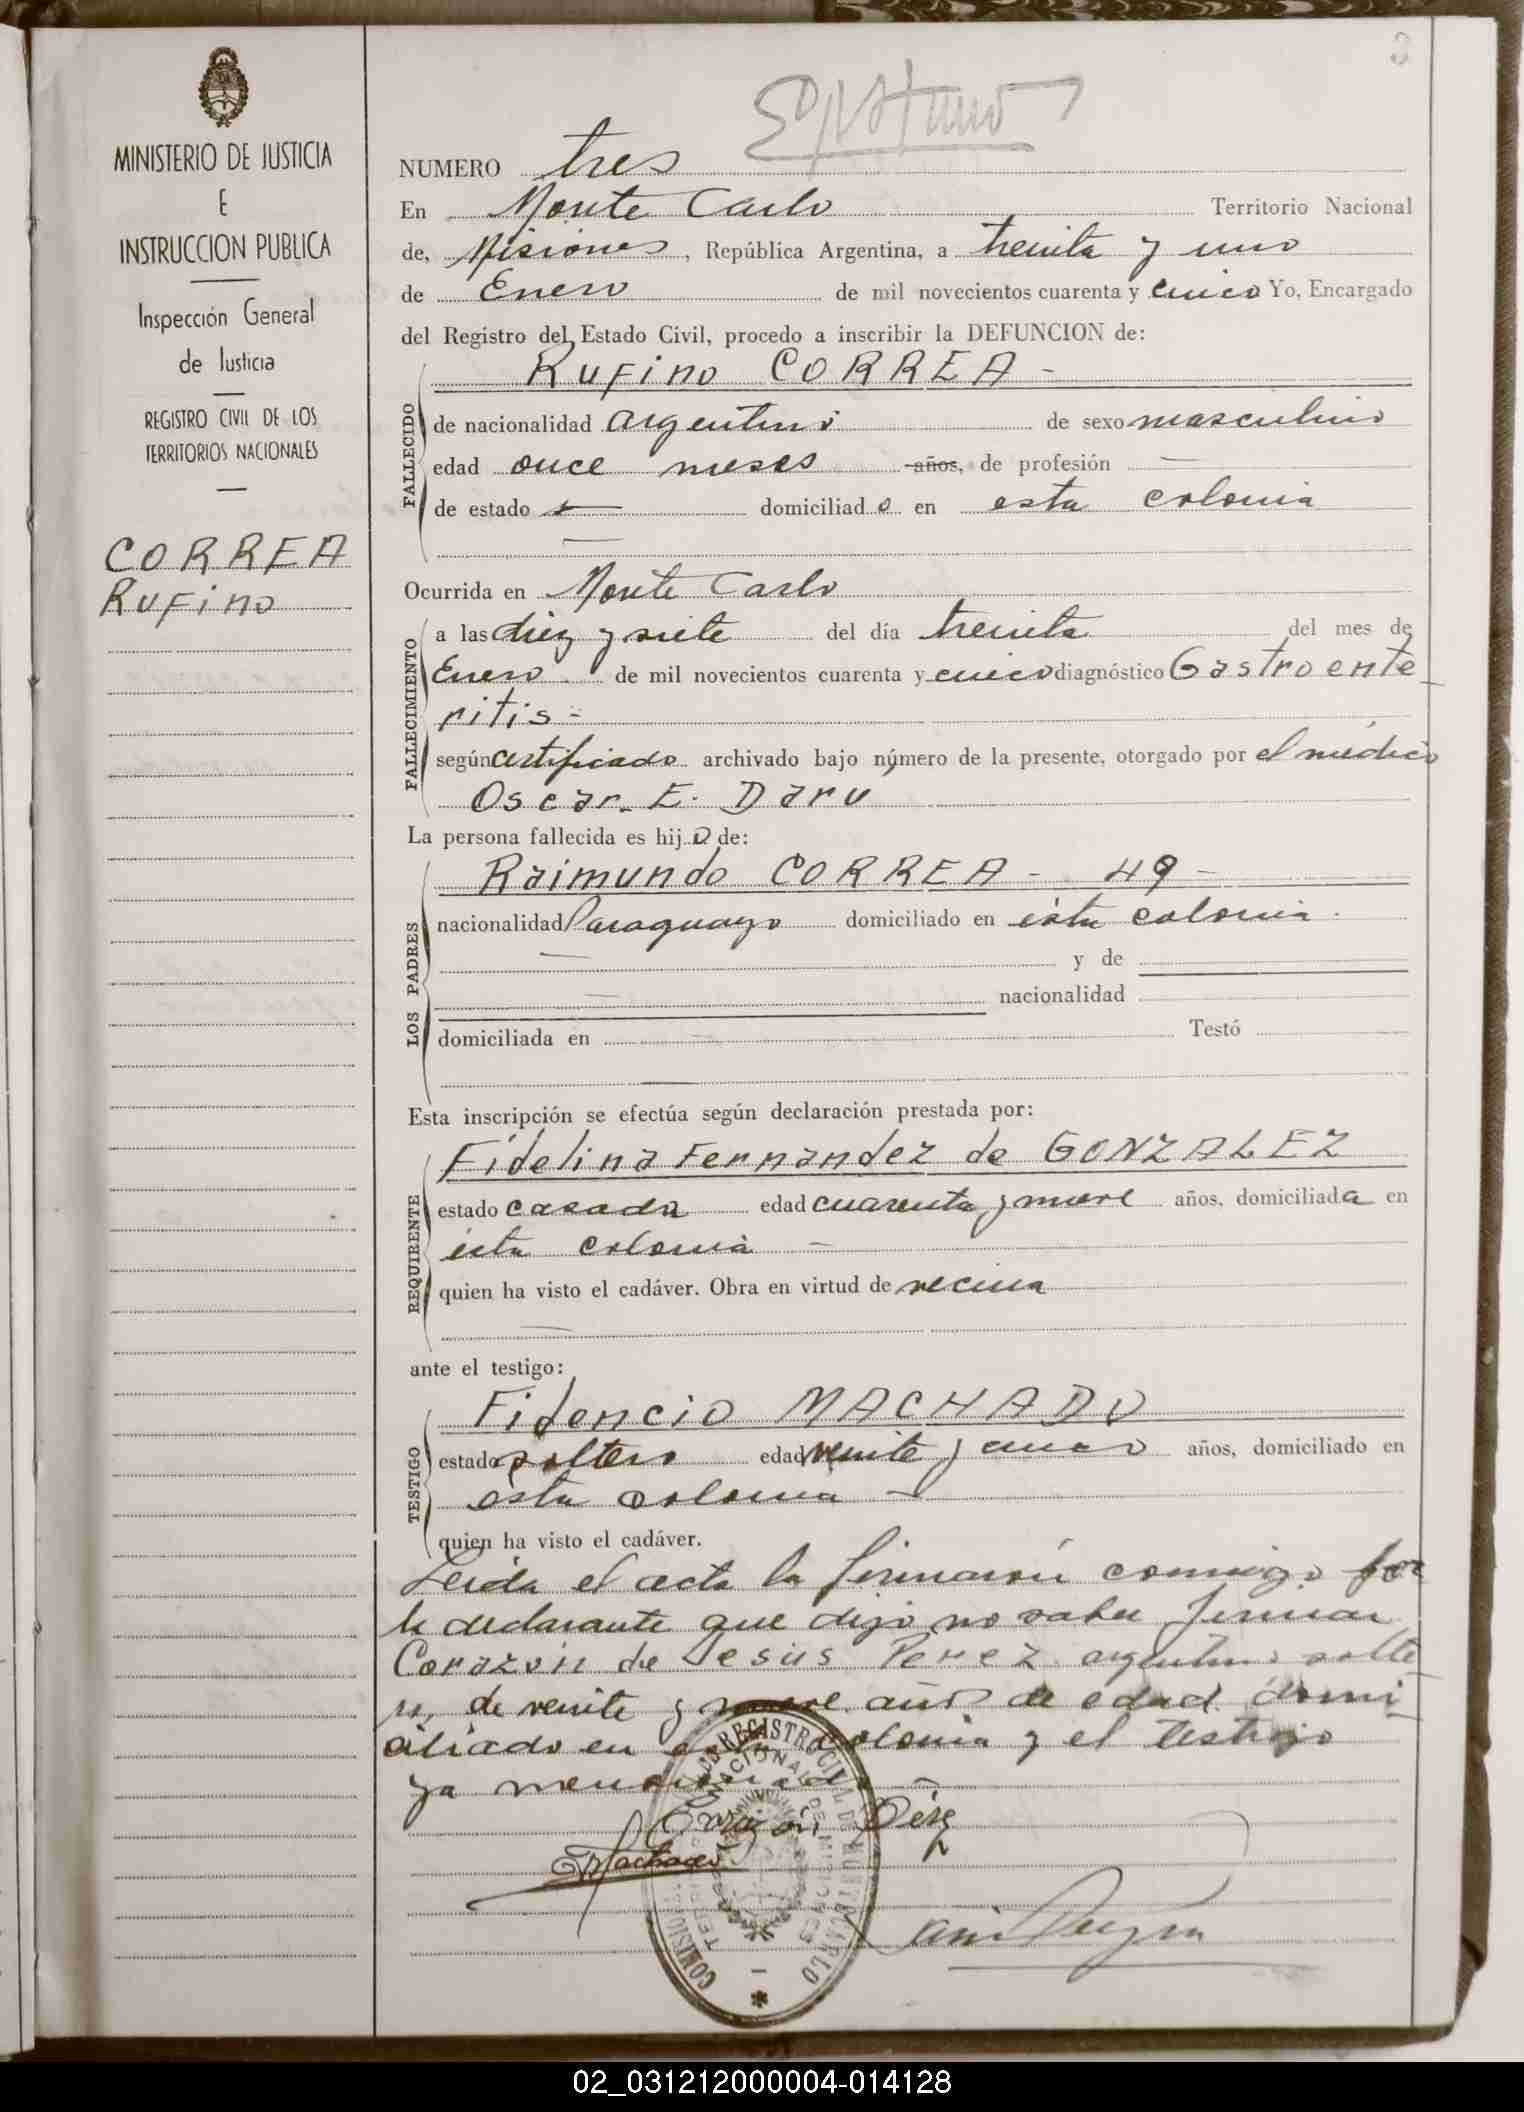 MINISTERIO DE JUSTICIA
E
INSTRUCCION PUBLICA
Inspección General
de Justicia
REGISTRO CIVIL DE LOS
TERRITORIOS NACIONALES
CORREA
Rufino
3
NUMERO tres
En Monte Carlo Territorio Nacional
de, Misiones, República Argentina, a treinta y uno
de Enero de mil novecientos cuarenta y cinco Yo, Encargado
del Registro del Estado Civil, procedo a inscribir la DEFUNCION de:
Rufino CORREA -
FALLECIDO
de nacionalidad argentino de sexo masculino
edad once meses años, de profesión —
de estado — domiciliado en esta colonia
—
Ocurrida en Monte Carlo
FALLECIMIENTO
a las diez y siete del día treinta del mes de
Enero de mil novecientos cuarenta y cinco diagnóstico Gastroente
ritis -
según certificado archivado bajo número de la presente, otorgado por el médico
Oscar. E. Darú
La persona fallecida es hijo de:
Raimundo CORREA - 49 -
LOS PADRES
nacionalidad Paraguayo domiciliado en ésta colonia.
— y de
— nacionalidad
domiciliada en — Testó
—
Esta inscripción se efectúa según declaración prestada por:
Fidelina Fernandez de GONZALEZ
REQUIRENTE
estado casada edad cuarenta y nueve años, domiciliada en
ésta colonia —
quien ha visto el cadáver. Obra en virtud de vecina
—
ante el testigo:
Fidencio MACHADO
TESTIGO
estado soltero edad veinte y cinco años, domiciliado en
ésta colonia —
quien ha visto el cadáver.
Leída el acta la firmaron conmigo por
la declarante que dijo no saber firmar
Corazón de Jesús Pérez argentino solte
ro, de veinte y nueve años de edad domi
ciliado en esta colonia y el testigo
ya mencionado
Corazón Pérez
Machado
REGISTRO CIVIL DE MONTECARLO
TERRITORIO NACIONAL DE MISIONES
02_031212000004-014128